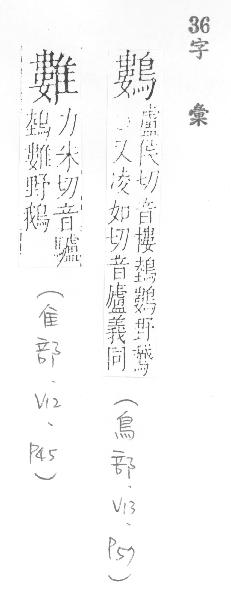 36字彙
鷜
盧侯切音樓鵱鷜野鵞
又凌如切音臚義同
(鳥部、V13、P57)
䨇
力朱切音驢
鵱䨇野鵝
(隹部、V12、P45)